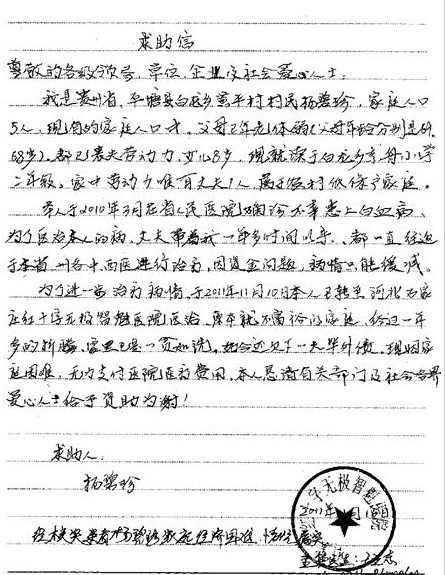 求助信
尊敬的各级领导、单位、企业及社会爱心人士:
我是贵州省、平塘县白龙乡 平村村民杨碧珍，家庭人口
5人，现有的家庭人口 。父母已年老体弱(父母年龄分别是69、
68岁)。都已丧失劳动力，女儿8岁，现就读于白龙乡 小学
二年级，家中劳动力唯有丈夫1人，属于农村低保户家庭。
本人于2010年3月在省人民医院确诊不幸患上白血病，
为了医治本人的病，丈夫带着我一年多时间以来、都一直经近
于本省 州各中西医进行治疗，因资金问题，病情只能缓减。
为了进一步治疗病情，于2011年11月10日本人已转至河北石家
庄红十字无极智魁医院医治。原本就不富裕的家庭，经过一年
多的折腾，家里已是一贫如洗。 还欠下一大笔外债，现因家
庭困难，无力支付医院医疗费用，本人恳请有关部门及社会各界
爱心人士给予资助为谢！
求助人:
杨碧珍
字无极智魁
2011年
经核实患者杨碧珍家庭经济困难，情况属实